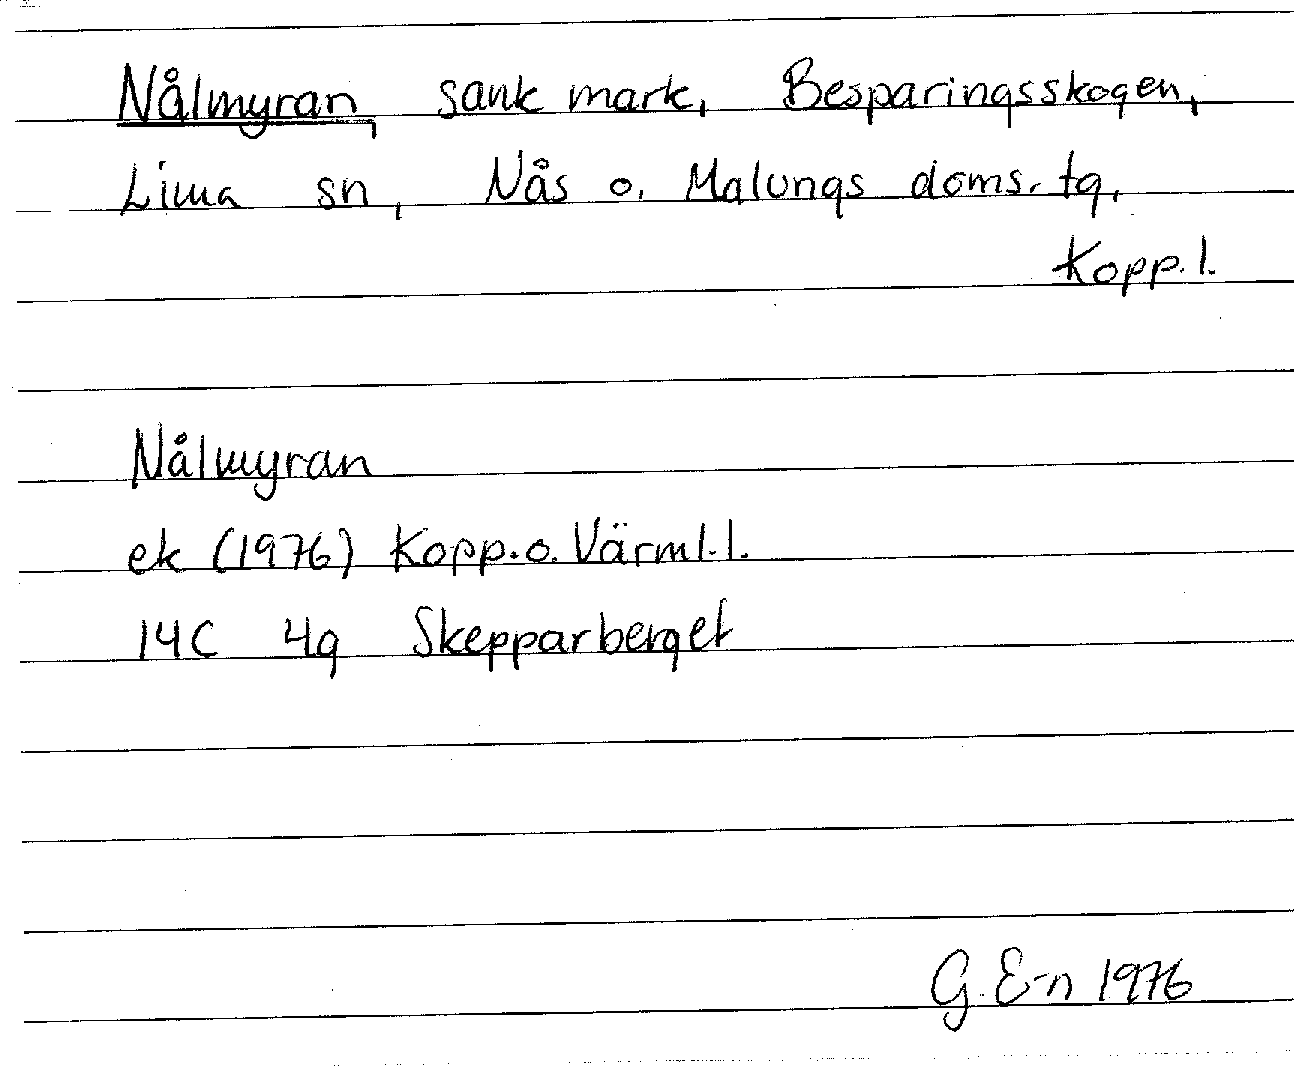 Nålmyran, sank mark, Besparingsskogen,
Lima sn, Nås o. Malungs doms. tg,
Kopp. l.
Nålmyran
ek (1976) Kopp. o. Värml. l.
14C 4g Skepparberget
G. E-n 1976